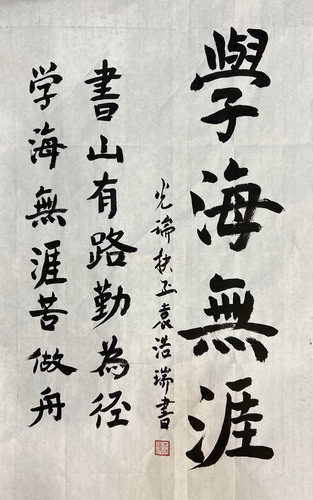 學海無涯
光瑞扶正袁浩瑞書
書山有路勤為径
学海無涯苦做舟